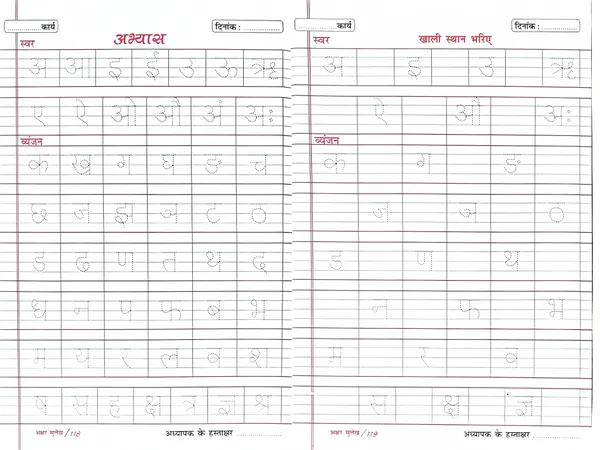 कार्य
दिनांक :
अभ्यास
स्वर
अ आ इ ई उ ऊ ऋ
ए ऐ ओ औ अं अः
व्यंजन
क ख ग घ ङ च
छ ज झ ञ ट ठ
ड ढ ण त थ द
ध न प फ ब भ
म य र ल व श
ष स ह क्ष त्र ज्ञ श्र
अक्षरा सुलेख/118
अध्यापक के हस्ताक्षर
कार्य
दिनांक :
खाली स्थान भरिए
स्वर
अ इ उ ऋ
ऐ औ अः
व्यंजन
क ग ङ
ज ञ ठ
ड ण थ
न फ भ
म र व
स क्ष ज्ञ
अक्षरा सुलेख/119
अध्यापक के हस्ताक्षर